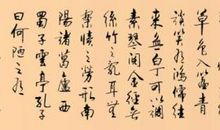 草色入簾青
談笑有鴻儒往
來無白丁可以調
素琴閱金經無
絲竹之亂耳無
案牘之勞形南
陽諸葛廬西
蜀子雲亭孔子
曰何陋之有